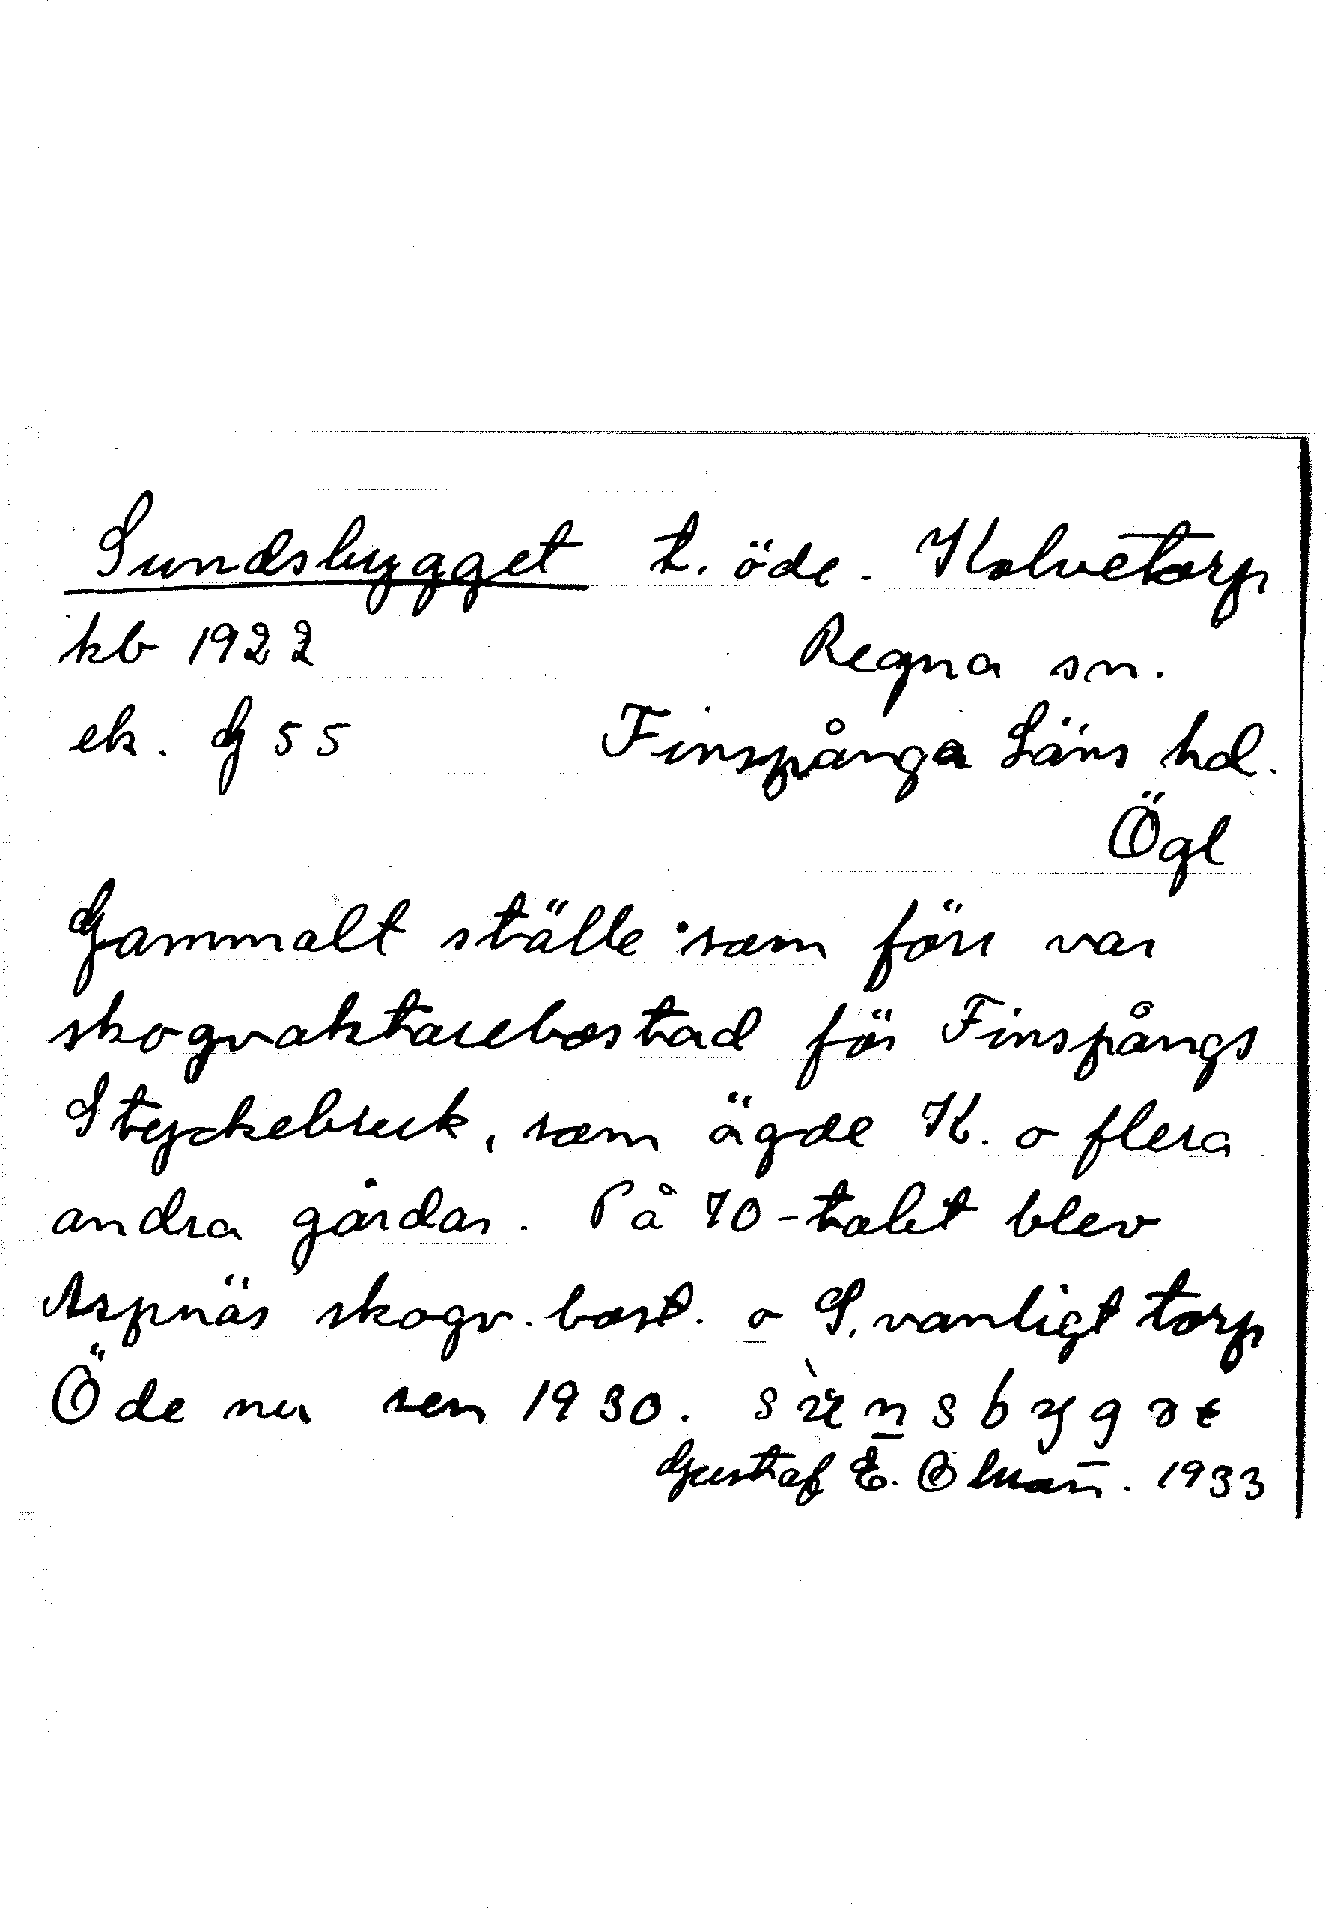 Sundsbygget t. öde. Kolvetorp
kb 1922 Regna sn.
ek. G 55 Finspånga Läns hd.
Ögl
Gammalt ställe som förr var
skogvaktarebostad för Finspångs
Styckebruk, som ägde K. o flera
andra gårdar. På 70-talet blev
Aspnäs skogv. bost. o S. vanligt torp
Öde nu sen 1930.
Gustaf E. 1933